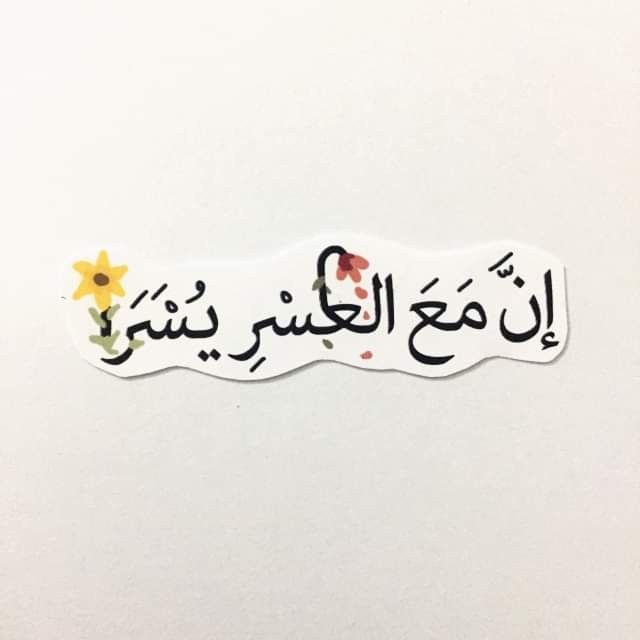 إنَّ مَعَ العسْرِ يُسْرَا